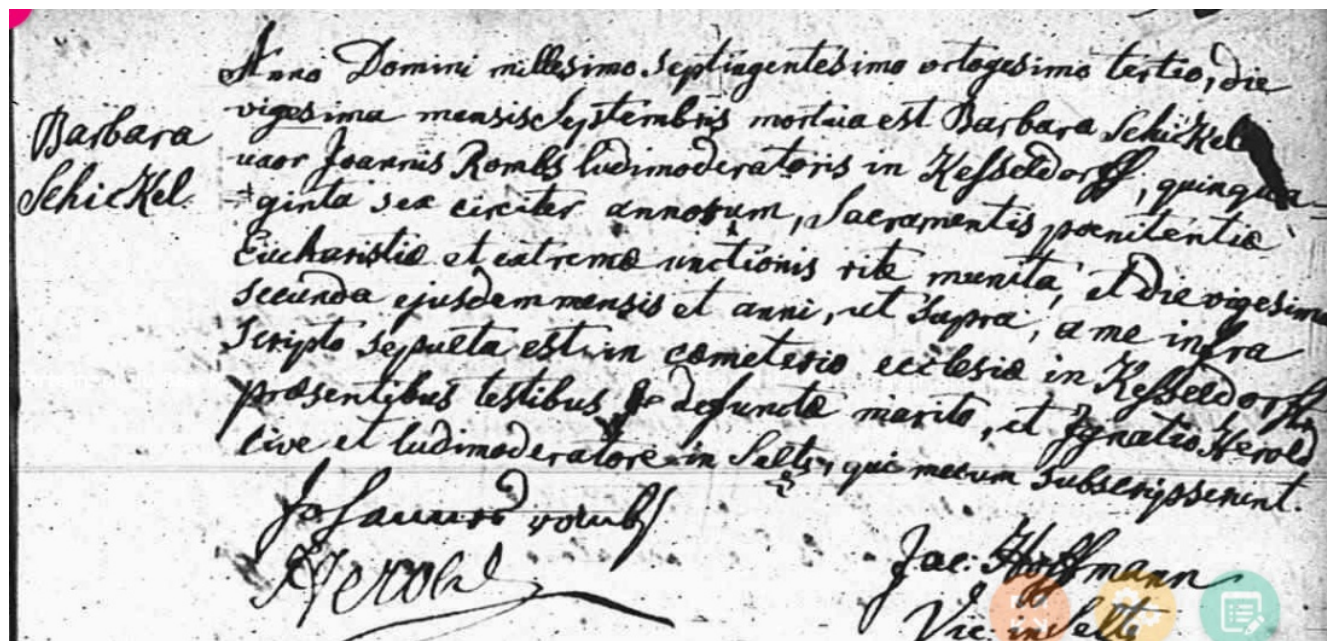 Anno Domini millesimo septingentesimo octogesimo tertio, die
vigesima mensis Septembris mortua est Barbara Schickel
Barbara
Schickel.
uxor Joannis Rombs ludimoderatoris in Kesseldorff, quinqua-
ginta sex circiter annorum, Sacramentis poenitentiæ
Eucharistiæ et extremæ unctionis rite munita, et die vigesima
secunda ejusdem mensis et anni, ut supra, a me infra
scripto sepulta est in cæmeterio ecclesiæ in Kesseldorff,
præsentibus testibus defunctæ marito, et Ignatio Herold
cive et ludimoderatore in Selts, qui mecum subscripserunt.
Johannes rombs
Herold
Jac: Hoffmann
Vic: in Selts